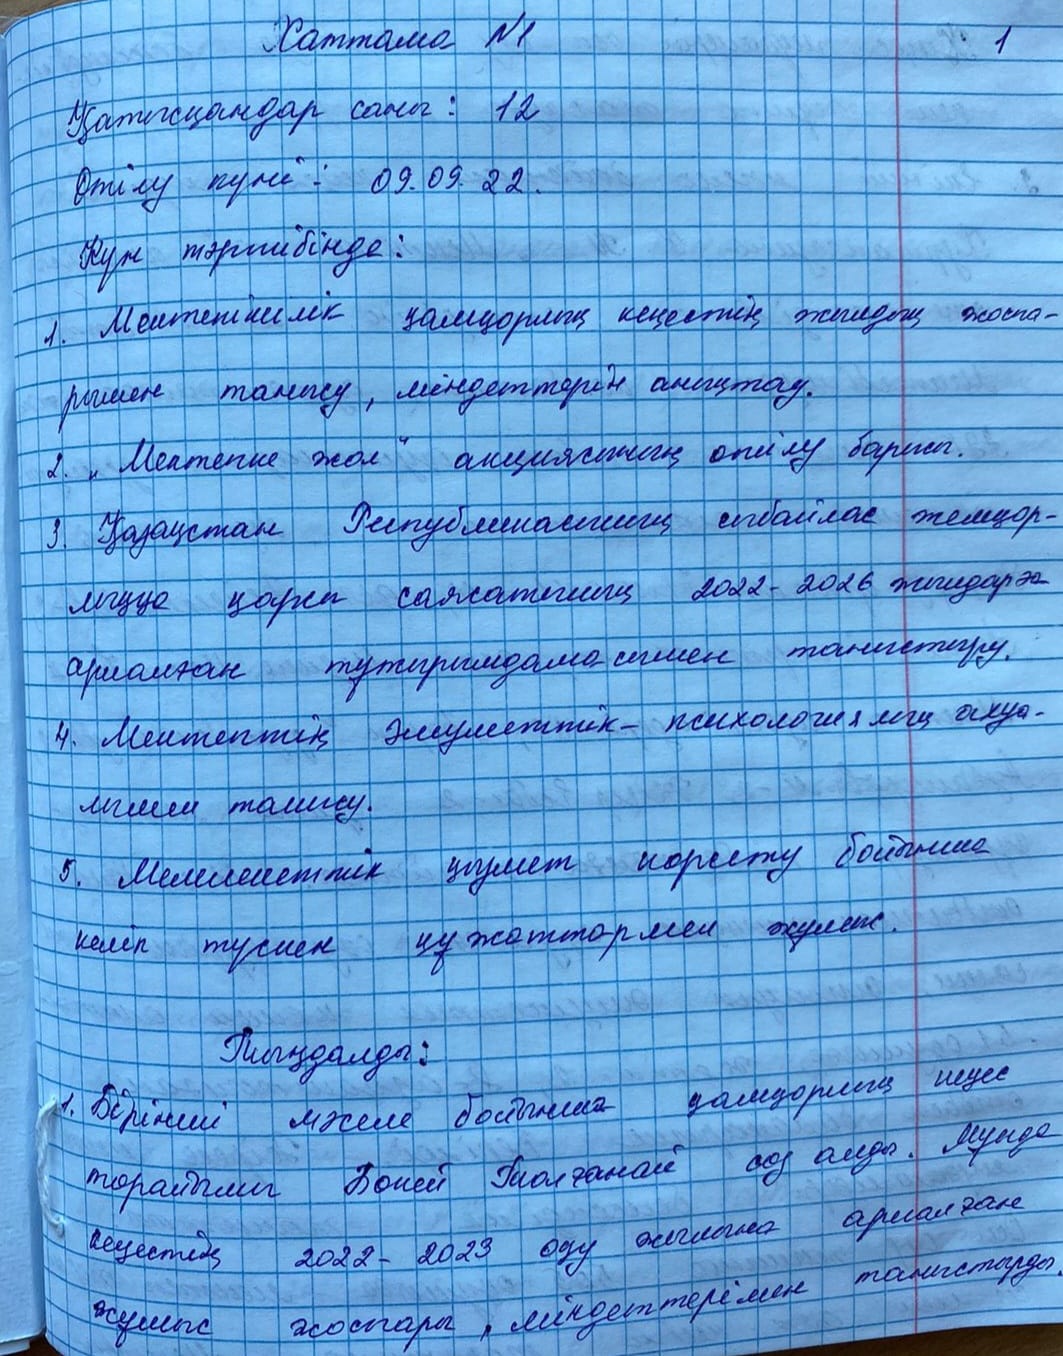 Хаттама №1
1
Қатысқандар саны: 12
Өтілу күні: 09.09.22.
Күн тәртібінде:
1. Мектепішілік қамқорлық кеңестің жылдық жоспа-
рымен танысу, міндеттерін анықтау.
2. „Мектепке жол" акциясының өтілу барысы.
3. Қазақстан Республикасының сыбайлас жемқор-
лыққа қарсы саясатының 2022-2026 жылдарға
арналған тұжырымдамасымен таныстыру.
4. Мектептің әлеуметтік-психологиялық ахуа-
лымен танысу.
5. Мемлекеттік қызмет көрсету бойынша
келіп түскен құжаттармен жұмыс.
Тыңдалды:
1. Бірінші мәселе бойынша қамқорлық кеңес
торайымы Бокей Гүлчанай сөз алды. Мұнда
кеңестің 2022-2023 оқу жылына арналған
жұмыс жоспары, міндеттерімен таныстырды.